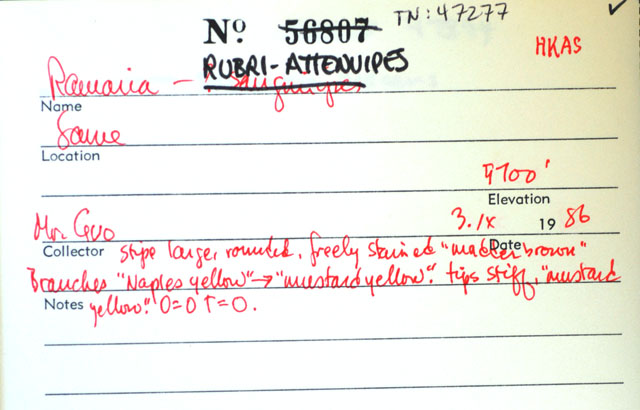 Nº 56807 TN: 47277
HKAS
RUBRI-ATTENUIPES
Ramaria - sanguinipes
Name
Same
Location
9700'
Elevation
Mr. Guo 3.IX 1986
Collector Date
stipe large, rounded, freely stained "madder brown"
Branches "Naples yellow" → "mustard yellow". tips stiff, "mustard
Notes yellow". O=O T=O.